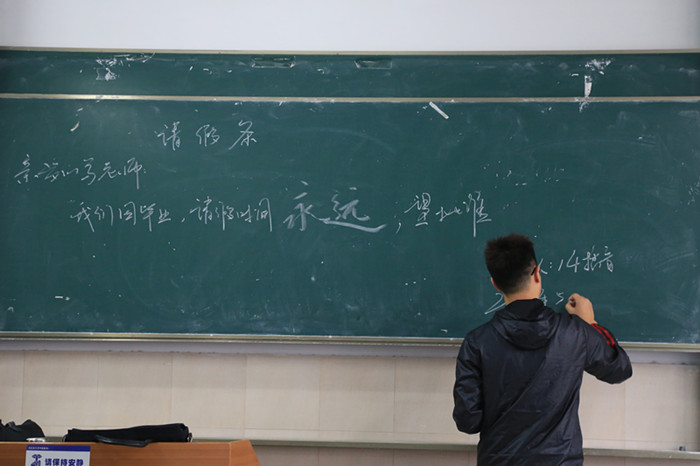 请假条
亲爱的老师:
我们因毕业,请假时间永远,望批准
人:14播音
请保持安静